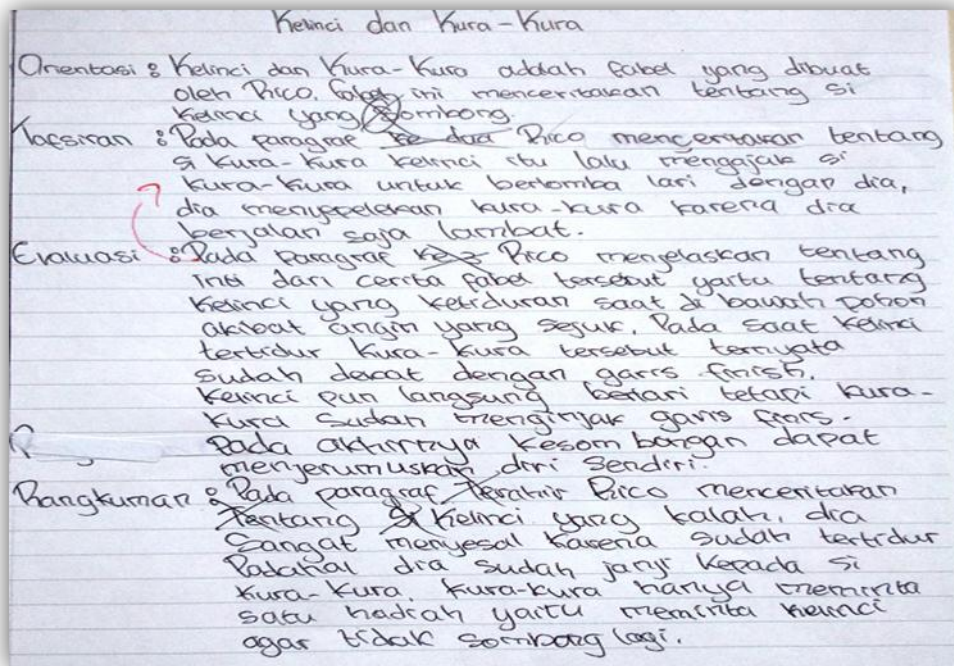 Kelinci dan Kura-Kura
Orientasi : Kelinci dan Kura-Kura adalah fabel yang dibuat
oleh Rico. fabel ini menceritakan tentang si
kelinci yang sombong.
Tafsiran : Pada paragraf ke dua Rico menceritakan tentang
si kura-kura kelinci itu lalu mengajak si
kura-kura untuk berlomba lari dengan dia,
dia menyepelekan kura-kura karena dia
berjalan saja lambat.
Evaluasi : Pada paragraf ke 3 Rico menjelaskan tentang
inti dari cerita fabel tersebut yaitu tentang
kelinci yang ketiduran saat di bawah pohon
akibat angin yang sejuk. Pada saat kelinci
tertidur kura-kura tersebut ternyata
sudah dekat dengan garis finish.
Kelinci pun langsung berlari tetapi kura-
kura sudah menginjak garis finis.
Pada akhirnya kesombongan dapat
menjerumuskan diri sendiri.
Rangkuman : Pada paragraf Terakhir Rico menceritakan
Tentang si kelinci yang kalah, dia
sangat menyesal karena sudah tertidur
Padahal dia sudah janji kepada si
kura-kura. kura-kura hanya meminta
satu hadiah yaitu meminta kelinci
agar tidak sombong lagi.